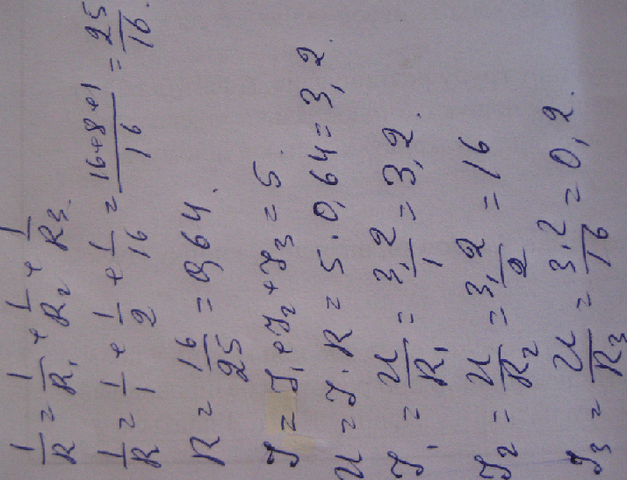 1/R = 1/R₁ + 1/R₂ + 1/R₃
1/R = 1/1 + 1/2 + 1/16 = (16+8+1)/16 = 25/16.
R = 16/25 = 0,64.
J = J₁ + J₂ + J₃ = 5.
U = J·R = 5·0,64 = 3,2.
J₁ = U/R₁ = 3,2/1 = 3,2.
J₂ = U/R₂ = 3,2/2 = 16
J₃ = U/R₃ = 3.2/16 = 0,2.